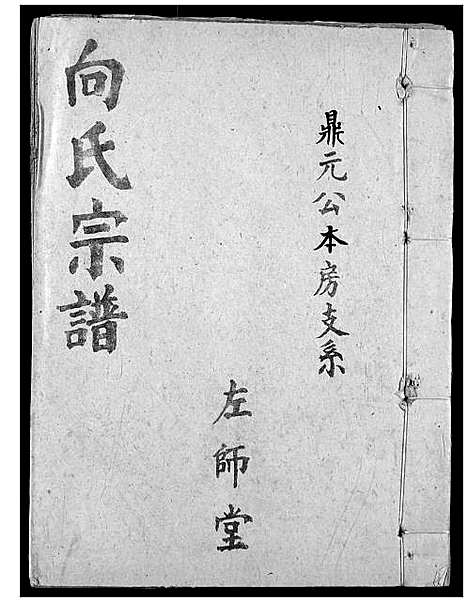 鼎元公本房支系
左師堂
向氏宗譜